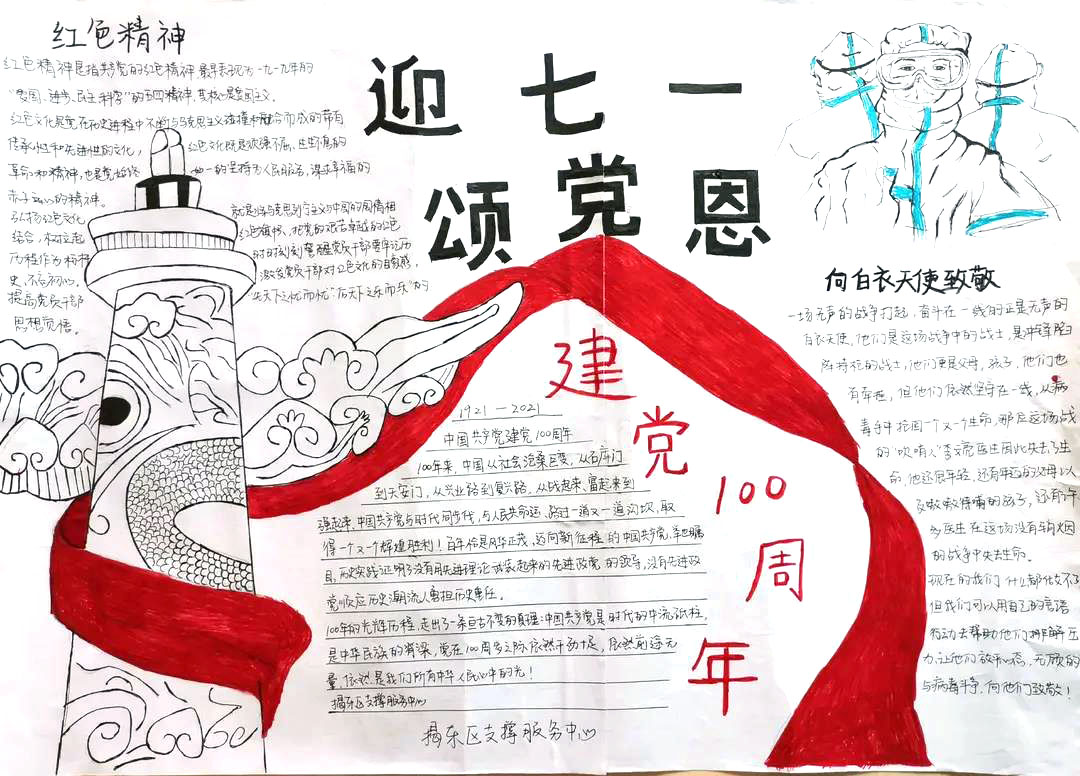 红色精神
红色精神是指共产党的红色精神 最早表现为一九一九年的
"爱国、进步、民主、科学"的五四精神,其核心是爱国主义。
红色文化是党在历史进程中不断与马克思主义碰撞和融合而成的带有
传承性和先进性的文化, 红色文化既是欲绿不屈、生生不息的
革命和精神,也是党始终 如一的坚持为人民服务,谋求幸福的
赤子 的精神。
弘扬红色文化 就是将马克思列宁主义与中国的国情相
结合,树立起 红色旗帜,对党的艰苦卓越的红色
历程作为标榜 时时刻刻警醒党员干部要牢记历
史,不忘初心, 激发党员干部对红色文化的自豪感,
提高党员干部 "先天下之忧而忧""后天下之乐而乐"的
思想觉悟。
迎七一
颂党恩
建党100周年
1921—2021
中国共产党建党100周年
100年来,中国从社会沧桑巨变,从石库门
到天安门,从兴业路到复兴路,从站起来、富起来到
强起来,中国共产党与时代同步伐,与人民共命运,跨过一道又一道沟坎,取
得一个又一个辉煌胜利!百年恰是风华正茂,迈向新征程的中国共产党,举世瞩
目,历史实践证明了没有用先进理论武装起来的先进政党的领导,没有先进政
党顺应历史潮流人勇担历史重任。
100年的光辉历程,走出了一条亘古不变的真理:中国共产党是时代的中流砥柱,
是中华民族的脊梁,党在100周岁之际依然干劲十足,依然前途无
量,依然是我们所有中华人民心中的光!
揭东区支撑服务中心
揭东区支撑服务中心
向白衣天使致敬
一场无声的战争打起,奋斗在一线的正是无声的
白衣天使,他们是这场战争中的战士,是冲锋陷
阵持枪的战士,他们更是父母,孩子,他们也
有牵挂,但他们依然坚守在一线,从病
毒手中抢回一个又一个生命,那是这场战
的'吹哨人'李文亮医生因此失去了生
命,他还很年轻,还有年迈的父母以
及嗷嗷待哺的孩子,还有许
多医生在这场没有硝烟
的战争中失去生命。
现在的我们什么都做不了
但我们可以用自己的言语
行动去帮助他们排解压
力,让他们放平心态,无顾的
与病毒斗争,向他们致敬!